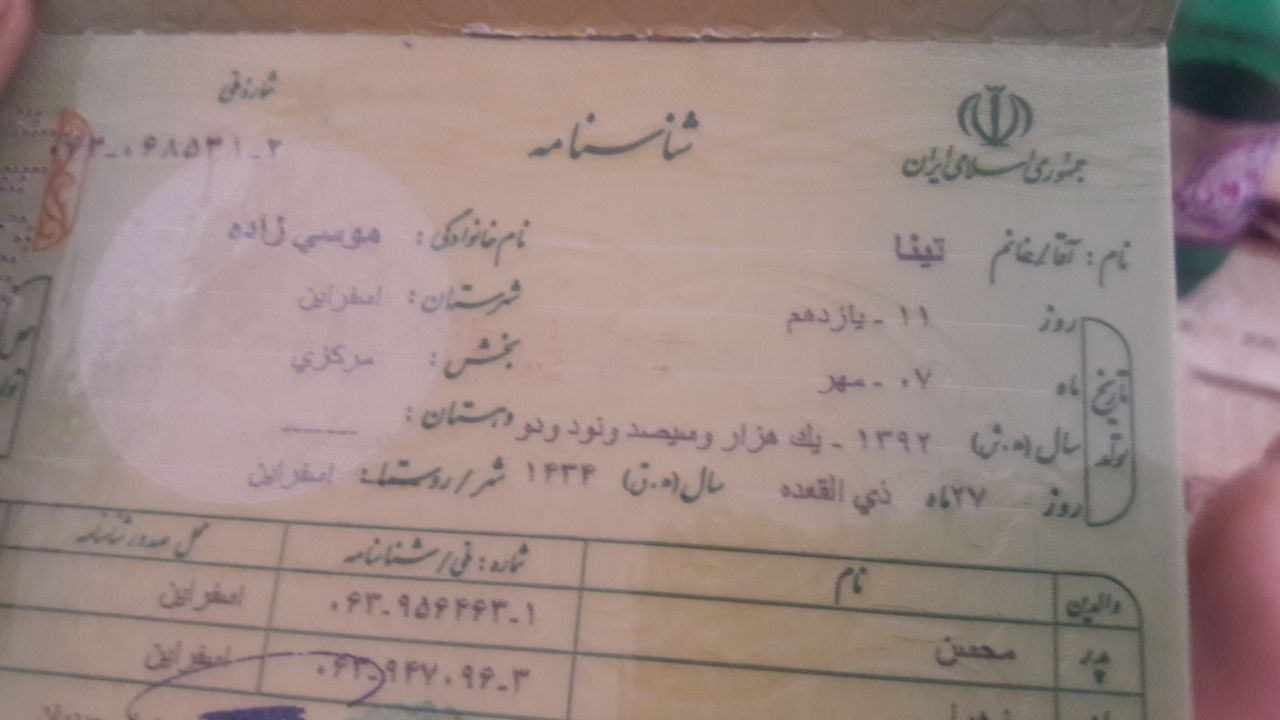 جمهوری اسلامی ایران
شناسنامه
شماره ملی
۰۶۳-۰۶۸۵۳۱-۲
نام : آقا/خانم تینا نام خانوادگی : موسي زاده
تاریخ تولد
روز ۱۱ - یازدهم شهرستان : اسفراین
ماه ۰۷ - مهر بخش : مرکزي
سال (ه.ش) ۱۳۹۲ - یك هزار وسیصد ونود ودو دهستان : -----
روز ۲۷ ماه ذي القعده سال (ه.ق) ۱۴۳۴ شهر/روستا: اسفراین
والدین نام شماره : ملی/شناسنامه محل صدور شناسنامه
پدر محسن ۰۶۳-۹۵۶۴۶۳-۱ اسفراین
۰۶۳-۹۴۷۰۹۶-۳ اسفراین